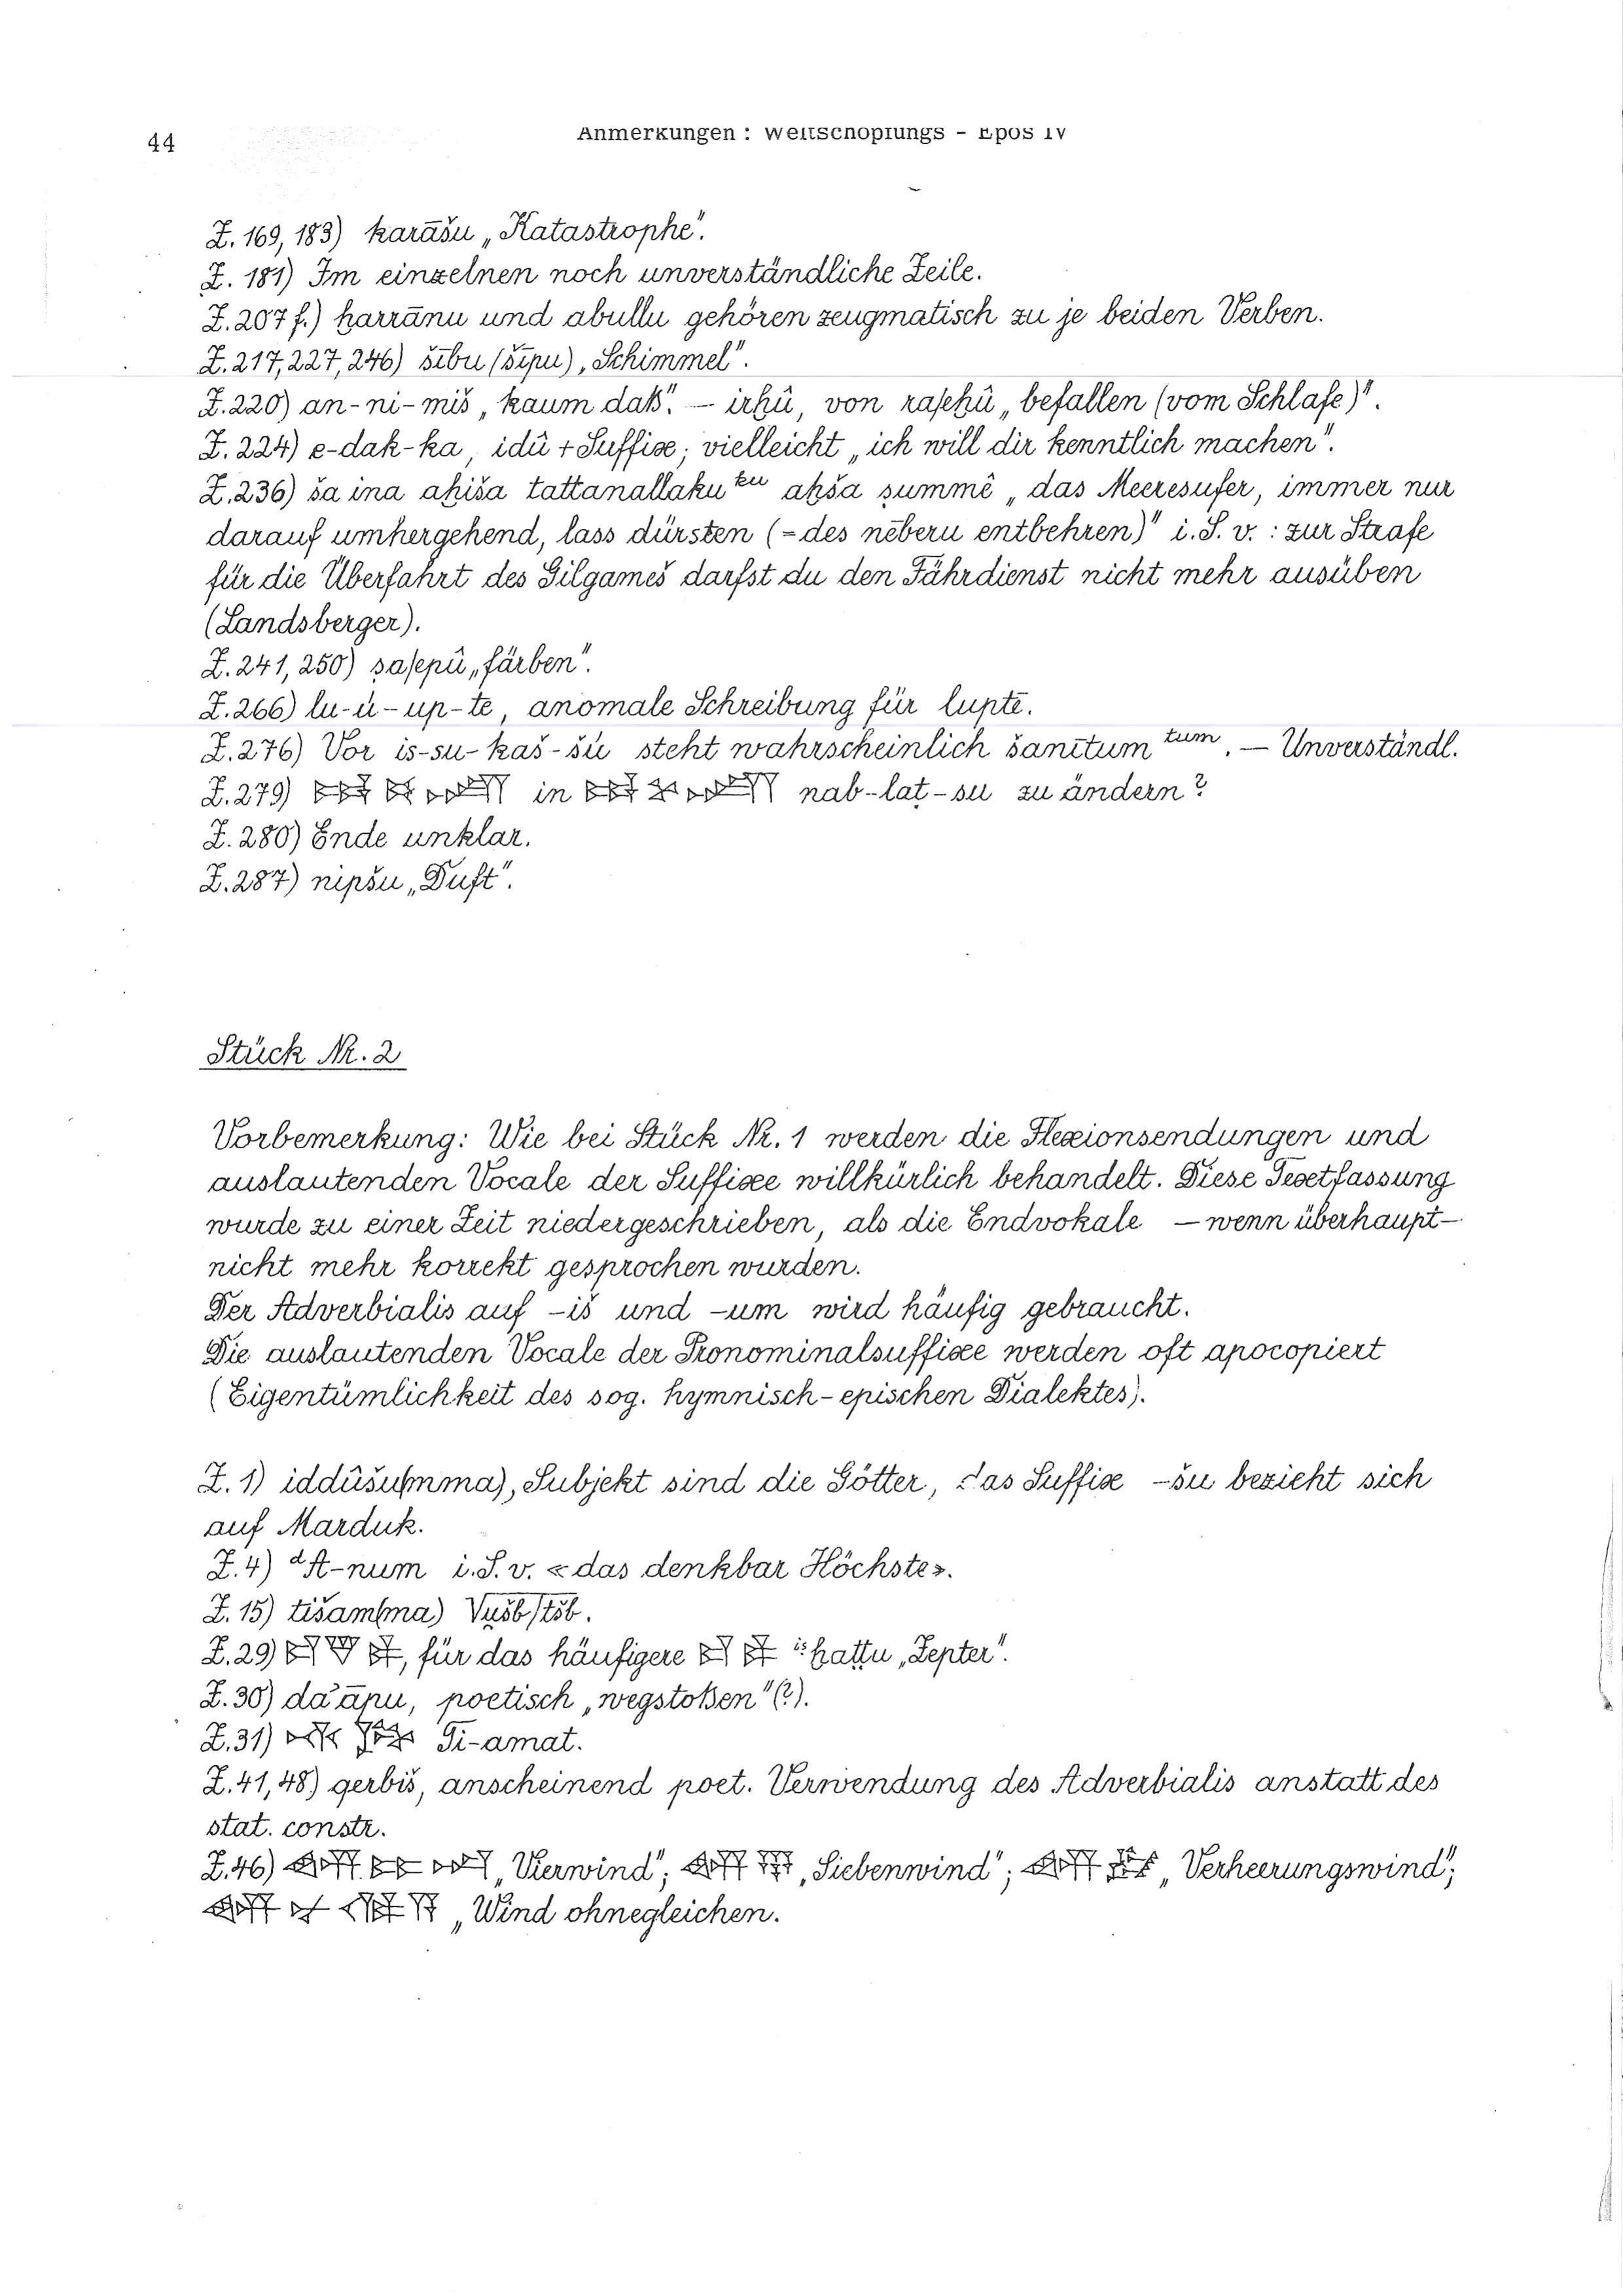 44
Anmerkungen : Weltschöpfungs - Epos IV
Z. 169, 183) karāšu „Katastrophe".
Z. 181) Im einzelnen noch unverständliche Zeile.
Z. 207 f.) ḫarrānu und abullu gehören zeugmatisch zu je beiden Verben.
Z. 217, 227, 246) šību (šīpu) „Schimmel".
Z. 220) an-ni-miš „kaum daß". — irḫû, von raʃeḫû „befallen (vom Schlafe)".
Z. 224) e-dak-ka, idû + Suffix; vielleicht „ich will dir kenntlich machen".
Z. 236) ša ina aḫiša tattanallaku ᵏᵘ aḫša ṣummê „das Meeresufer, immer nur
darauf umhergehend, lass dürsten (= des nēberu entbehren)" i. S. v. : zur Strafe
für die Überfahrt des Gilgameš darfst du den Fährdienst nicht mehr ausüben
(Landsberger).
Z. 241, 250) ṣaʃepû „färben".
Z. 266) lu-ú-up-te, anomale Schreibung für lupte.
Z. 276) Vor is-su-kaš-šu steht wahrscheinlich šanītum ᵗᵘᵐ. — Unverständl.
Z. 279) in nab-lat-su zu ändern?
Z. 280) Ende unklar.
Z. 287) nipšu „Duft".
Stück Nr. 2
Vorbemerkung: Wie bei Stück Nr. 1 werden die Flexionsendungen und
auslautenden Vocale der Suffixe willkürlich behandelt. Diese Textfassung
wurde zu einer Zeit niedergeschrieben, als die Endvokale — wenn überhaupt —
nicht mehr korrekt gesprochen wurden.
Der Adverbialis auf -iš und -um wird häufig gebraucht.
Die auslautenden Vocale der Pronominalsuffixe werden oft apocopiert
(Eigentümlichkeit des sog. hymnisch-epischen Dialektes).
Z. 1) iddûšu(mma), Subjekt sind die Götter, das Suffix -šu bezieht sich
auf Marduk.
Z. 4) ᵈA-num i. S. v. «das denkbar Höchste».
Z. 15) tišam(ma) Vušb/tšb.
Z. 29) , für das häufigere ⁱˢ ḫaṭṭu „Zepter".
Z. 30) da'āpu, poetisch „wegstoßen" (?).
Z. 31) Ti-amat.
Z. 41, 48) qerbiš, anscheinend poet. Verwendung des Adverbialis anstatt des
stat. constr.
Z. 46) „Vierwind"; „Siebenwind"; „Verheerungswind";
„Wind ohnegleichen.